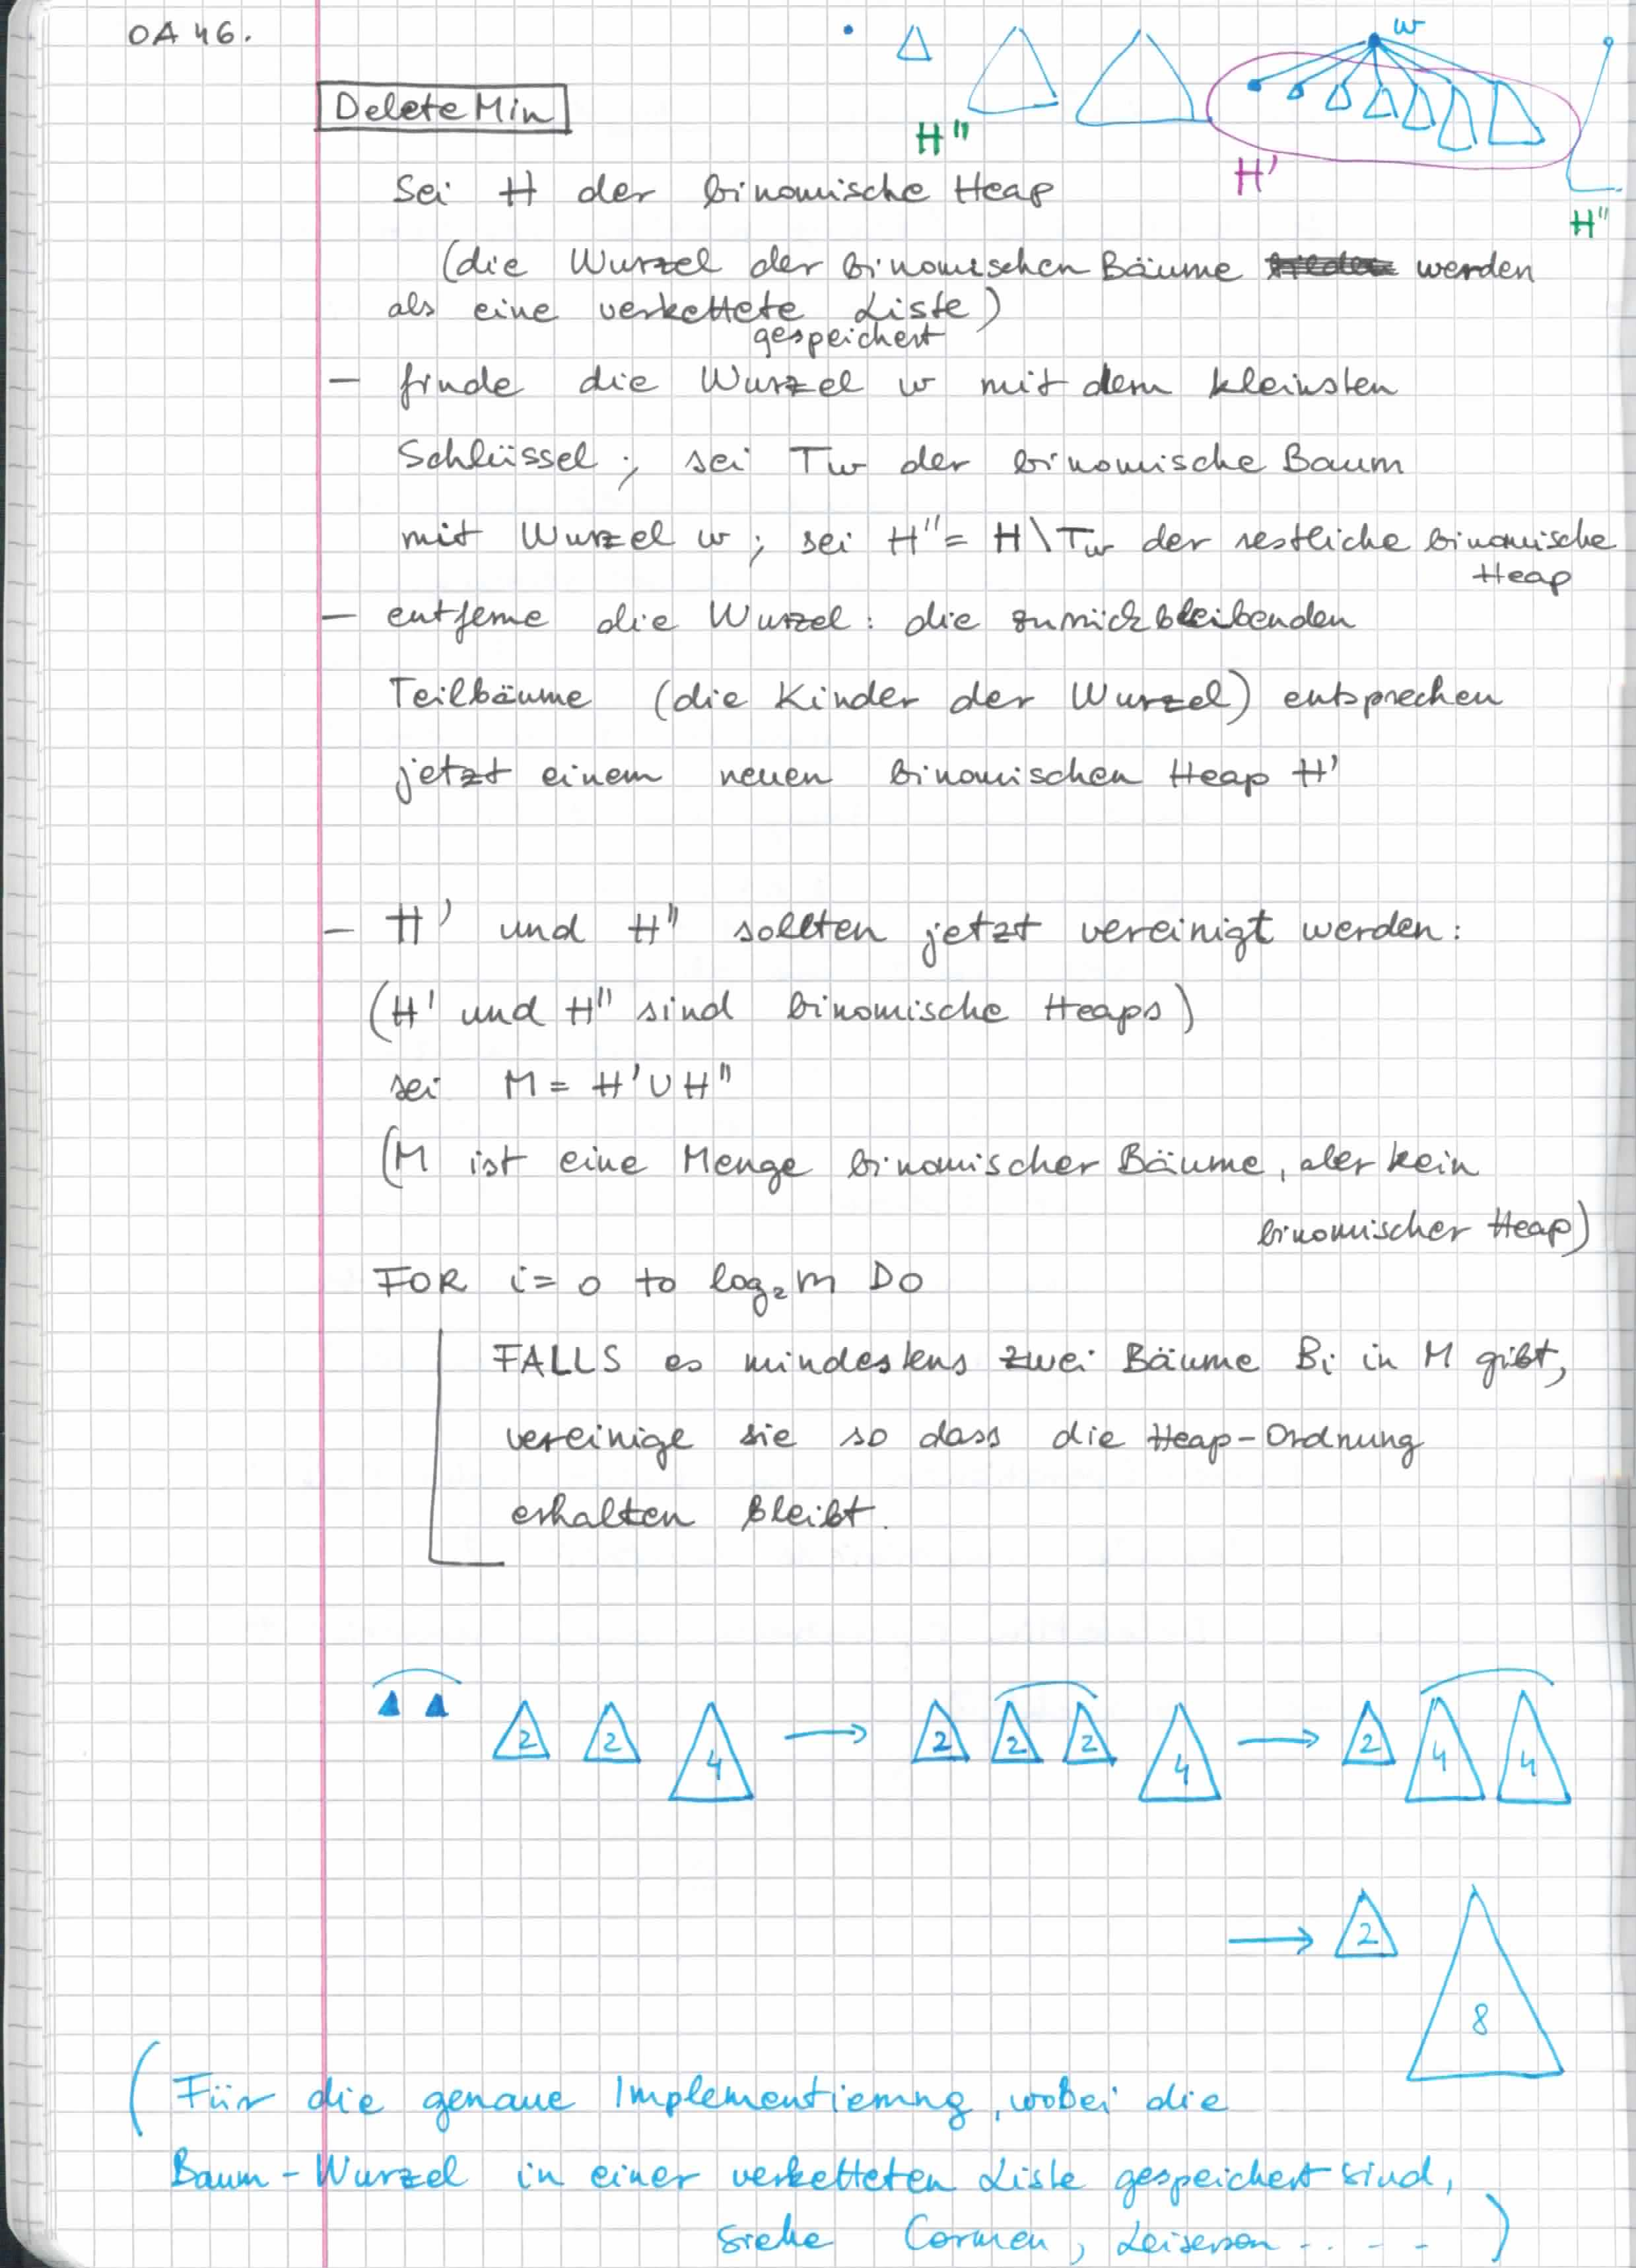 OA 46.
w
DeleteMin
H''
H'
H''
Sei H der binomische Heap
(die Wurzel der binomischen Bäume werden
als eine verkettete Liste)
gespeichert
- finde die Wurzel w mit dem kleinsten
Schlüssel; sei Tw der binomische Baum
mit Wurzel w; sei H'' = H\Tw der restliche binomische
Heap
- entferne die Wurzel: die zurückbleibenden
Teilbäume (die Kinder der Wurzel) entsprechen
jetzt einem neuen binomischen Heap H'
- H' und H'' sollten jetzt vereinigt werden:
(H' und H'' sind binomische Heaps)
sei M = H' ∪ H''
(M ist eine Menge binomischer Bäume, aber kein
binomischer Heap)
FOR i = 0 to log₂ m DO
FALLS es mindestens zwei Bäume Bi in M gibt,
vereinige sie so dass die Heap-Ordnung
erhalten bleibt.
2 2 4 → 2 2 2 4 → 2 4 4
→ 2 8
(Für die genaue Implementierung, wobei die
Baum-Wurzel in einer verketteten Liste gespeichert sind,
siehe Cormen, Leiserson . . . .)